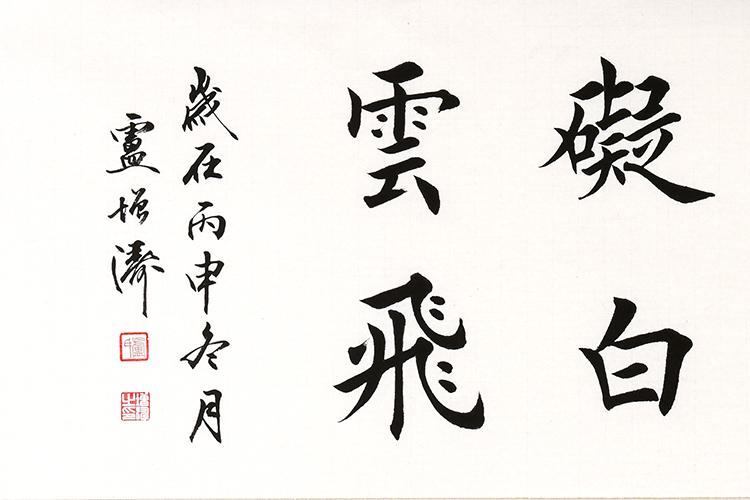 礙白
雲飛
歲在丙申冬月
盧增濤